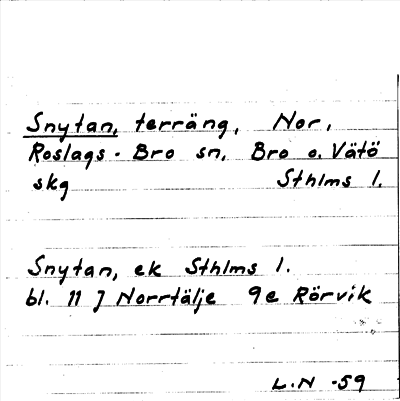 Snytan, terräng, Nor,
Roslags-Bro sn, Bro o. Vätö
skg Sthlms l.
Snytan, ek Sthlms l.
bl. 11 J Norrtälje 9e Rörvik
L.N -59